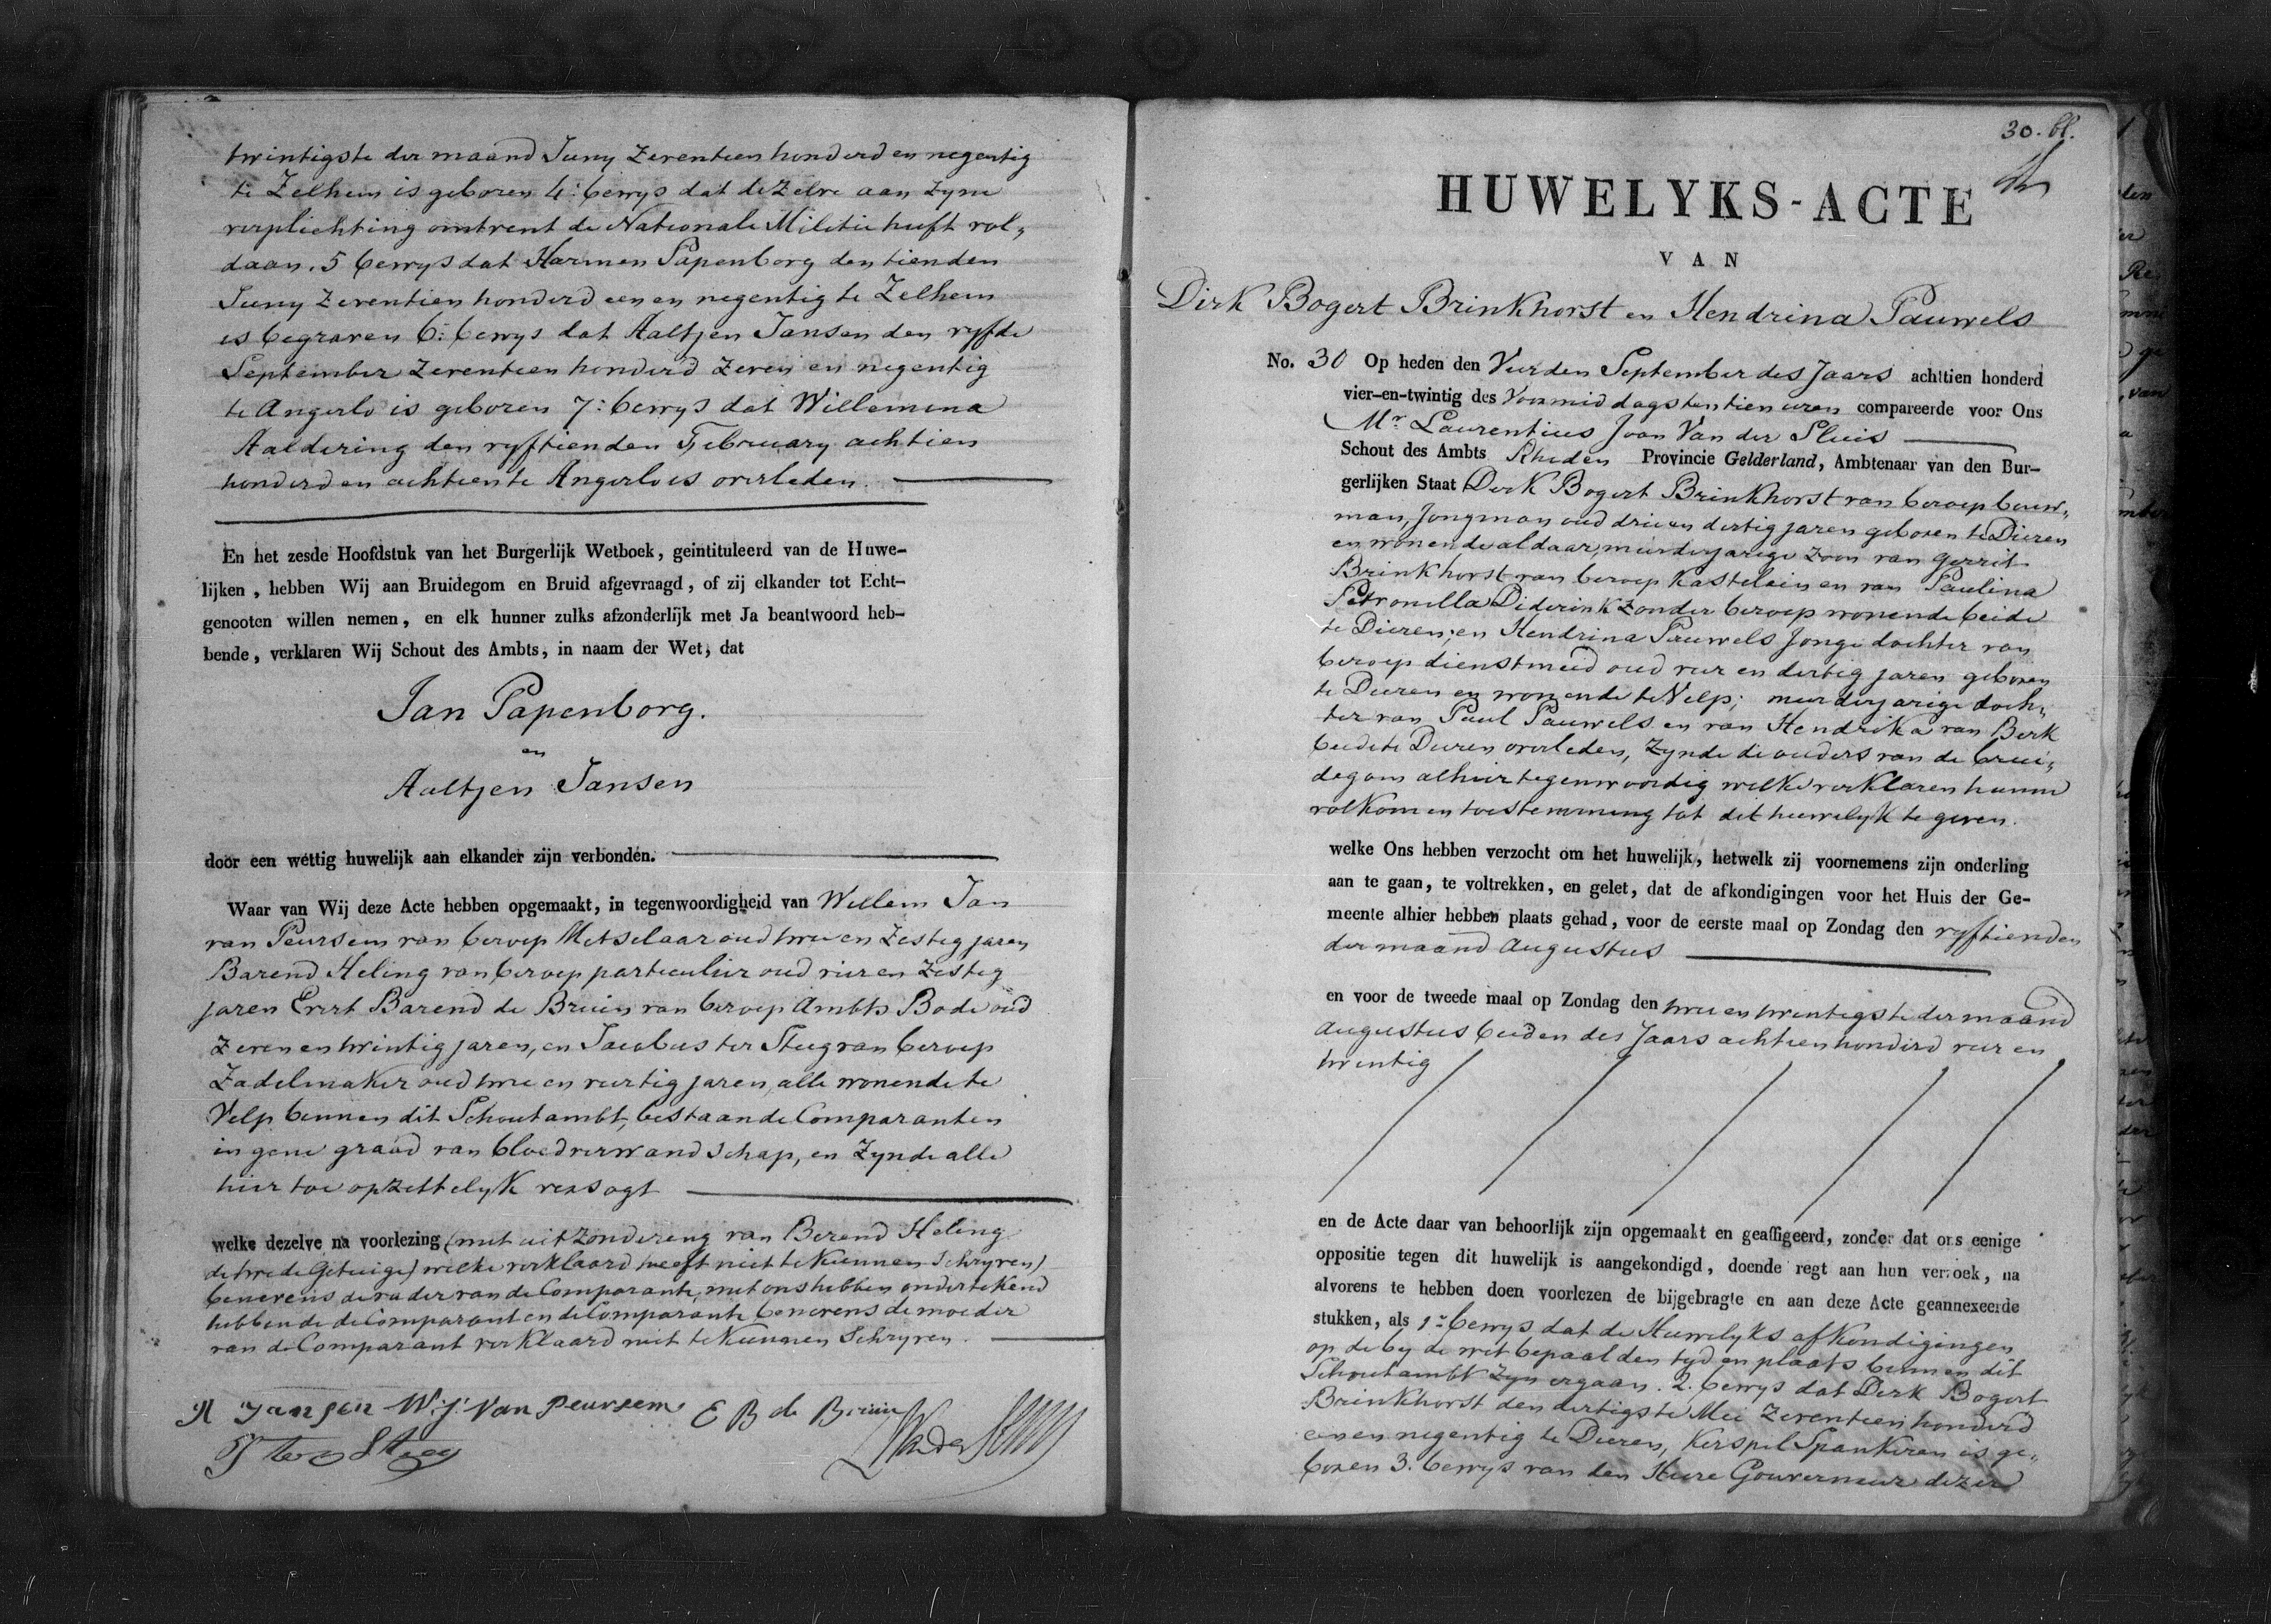 twintigste der maand Juny Zeventien honderd en negentig
te Zelhem is geboren 4: bewys dat dezelve aan zyne
verplichting omtrent de Nationale Militie heeft vol„
daan. 5 bewys dat Harmen Papenborg den tienden
Juny Zeventien honderd een en negentig te Zelhem
is begraven 6: bewys dat Aaltjen Jansen den vyfde
September Zeventien honderd zeven en negentig
te Angerlo is geboren 7: bewys dat Willemina
Aaldering den vyftienden February achtien
honderd en achtien te Angerlo is overleden.
En het zesde Hoofdstuk van het Burgerlijk Wetboek, geintituleerd van de Huwe-
lijken, hebben Wij aan Bruidegom en Bruid afgevraagd, of zij elkander tot Echt-
genooten willen nemen, en elk hunner zulks afzonderlijk met Ja beantwoord heb-
bende, verklaren Wij Schout des Ambts, in naam der Wet, dat
Jan Papenborg.
en
Aaltjen Jansen
door een wettig huwelijk aan elkander zijn verbonden.
Waar van Wij deze Acte hebben opgemaakt, in tegenwoordigheid van Willem Jan
van Peursem van beroep Metselaar oud twee en Zestig jaren
Barend Heling van beroep particulier oud vier en Zestig
jaren Evert Barend de Bruin van beroep Ambts Bode oud
Zeven en twintig jaren, en Jacobus ter Steeg van beroep
Zadelmaker oud twee en veertig jaren, alle wonende te
Velp binnen dit Schoutambt, bestaande Comparanten
in gene graad van bloedverwandschap, en Zynde alle
hier toe opzettelyk versogt
welke dezelve na voorlezing (met uitzondering van Berend Heling
de twede Getuige) welke verklaard heeft niet te kunnen Schryven)
benevens de vader van de Comparante, met ons hebben ondertekend
hebbende de Comparant en de Comparante benevens de moeder
van de Comparant verklaard niet te kunnen Schryven.
A Jansen W: J: Van Peursem E B de Bruin
J ter Steeg
30. bl.
HUWELYKS-ACTE
VAN
Dirk Bogert Brinkhorst en Hendrina Pauwels
No. 30 Op heden den Vierden September des Jaars achttien honderd
vier-en-twintig des Voormiddags ten tien uren compareerde voor Ons
Mr. Laurentius Joan Van der Sluis
Schout des Ambts Rheden Provincie Gelderland, Ambtenaar van den Bur-
gerlijken Staat Derk Bogert Brinkhorst van beroep bouw„
man, Jongman oud drie en dertig jaren geboren te Dieren
en wonende aldaar, meerderjarige zoon van Gerrit
Brinkhorst van beroep Kastelein en van Paulina
Petronella Diderink zonder beroep wonende beide
te Dieren; en Hendrina Pauwels Jonge dochter van
beroep dienstmeid oud vier en dertig jaren geboren
te Dieren en wonende te Velp; meerderjarige doch„
ter van Paul Pauwels en van Hendrika van Berk
beide te Dieren overleden, Zynde de ouders van de brui„
degom alhier tegenwoordig welke verklaren hunne
volkomen toestemming tot dit huwelyk te geven.
welke Ons hebben verzocht om het huwelijk, hetwelk zij voornemens zijn onderling
aan te gaan, te voltrekken, en gelet, dat de afkondigingen voor het Huis der Ge-
meente alhier hebben plaats gehad, voor de eerste maal op Zondag den vyftienden
der maand augustus
en voor de tweede maal op Zondag den twee en twintigste der maand
augustus beiden des Jaars achtien honderd vier en
twintig
en de Acte daar van behoorlijk zijn opgemaakt en geaffigeerd, zonder dat ons eenige
oppositie tegen dit huwelijk is aangekondigd, doende regt aan hun verzoek, na
alvorens te hebben doen voorlezen de bijgebragte en aan deze Acte geannexeerde
stukken, als 1e bewys dat de Huwelyks afkondigingen
op de by de wet bepaalden tyd en plaats binnen dit
Schoutambt Zyn ergaan. 2. bewys dat Derk Bogert
Brinkhorst den dertigste Mei Zeventien honderd
een en negentig te Dieren, Kerspel Spankeren is ge„
boren 3. bewys van den Heere Gouverneur dezer